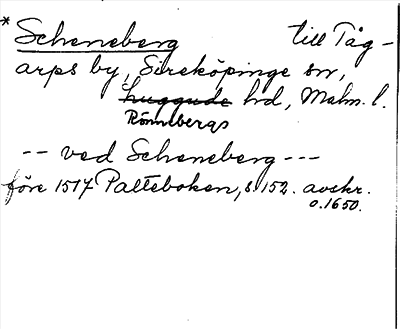 * Scheneberg till Tåg-
arps by, Sireköpinge sn,
Luggude hd, Malm. l.
Rönnebergs
-- ved Scheneberg ---
före 1517 Palteboken, s. 152. avskr.
o. 1650.